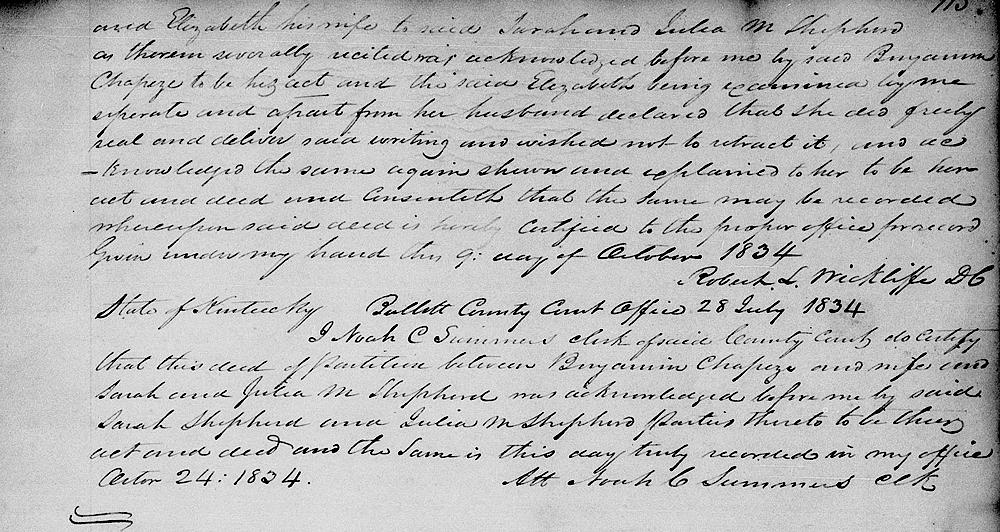 113
and Elizabeth his wife to said Sarah and Julia M Shepherd
as therein severally recited was acknowledged before me by said Benjamin
Chapeze to be his act and the said Elizabeth being examined by me
seperate and apart from her husband declared that she did freely
seal and deliver said writing and wished not to retract it, and ac
-knowledged the same again shewn and explained to her to be her
act and deed and consenteth that the same may be recorded
whereupon said deed is hereby certified to the proper office for record
Given under my hand this 9: day of October 1834
Robert L. Wickliffe DC
State of Kentucky Bullitt County Court Office 28 July 1834
I Noah C Summers clerk of said County Court do certify
that this deed of Partition between Benjamin Chapeze and wife and
Sarah and Julia M Shepherd was acknowledged before me by said
Sarah Shepherd and Julia M Shepherd Parties thereto to be their
act and deed and the same is this day truly recorded in my office
Octor 24: 1834. Att Noah C Summers clk